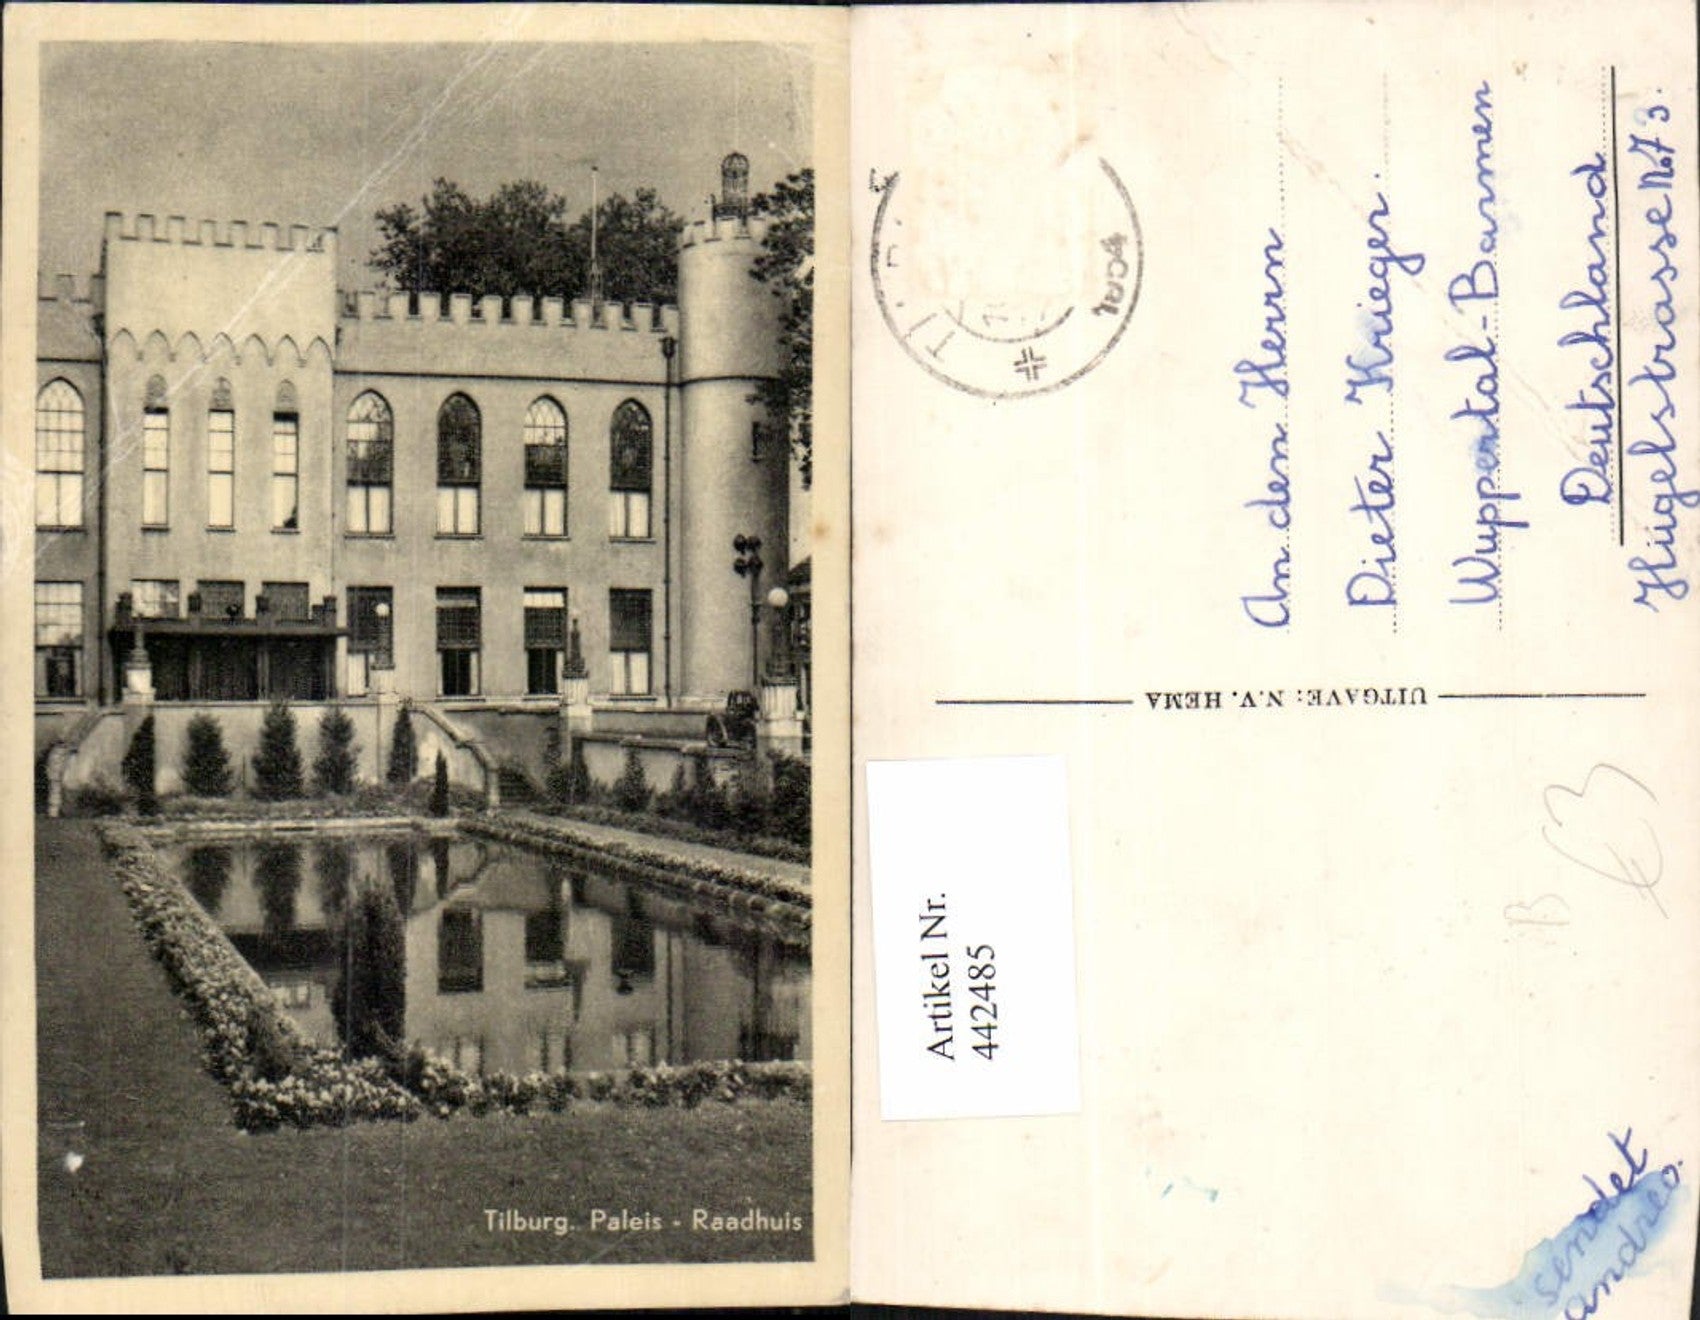 Tilburg. Paleis - Raadhuis
An den Herrn
Dieter Krieger.
Wuppertal-Barmen
Deutschland
Hügelstrasse Nº 73.
UITGAVE: N.V. HEMA
Artikel Nr.
442485
B
€3
sendet